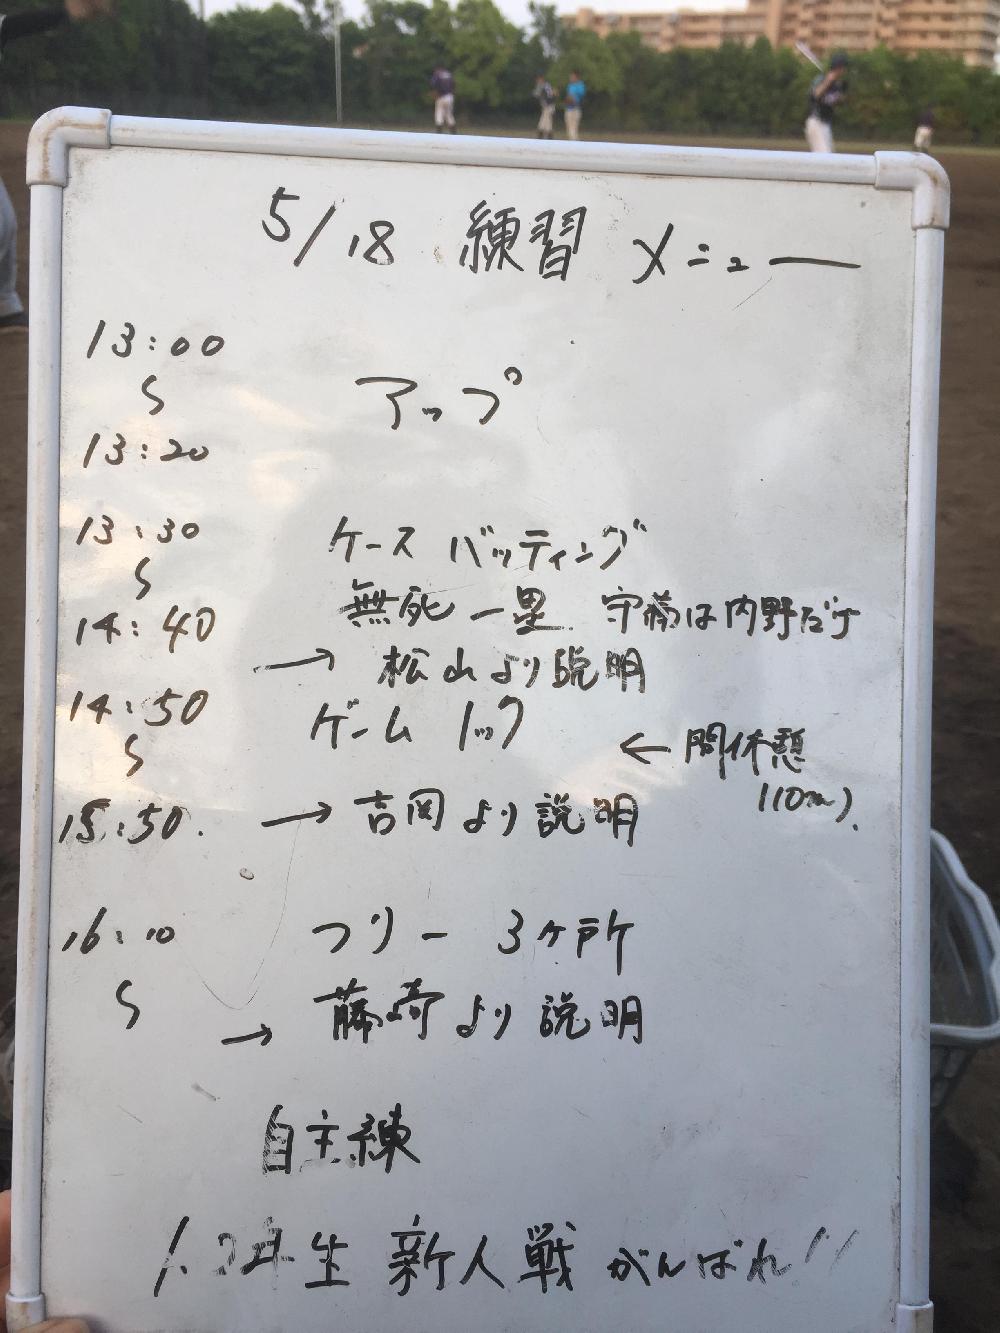 5/18 練習 メニュー
13:00
〜
アップ
13:20
13:30
ケース バッティング
〜
無死 一塁 守備は内野だけ
14:40
→ 松山より説明
14:50
ゲームノック
〜
← 間休憩
(10m)
15:50. → 吉岡より説明
16:10
フリー 3ヶ所
〜
→ 藤崎より説明
自主練
1.2年生 新人戦 がんばれ!!